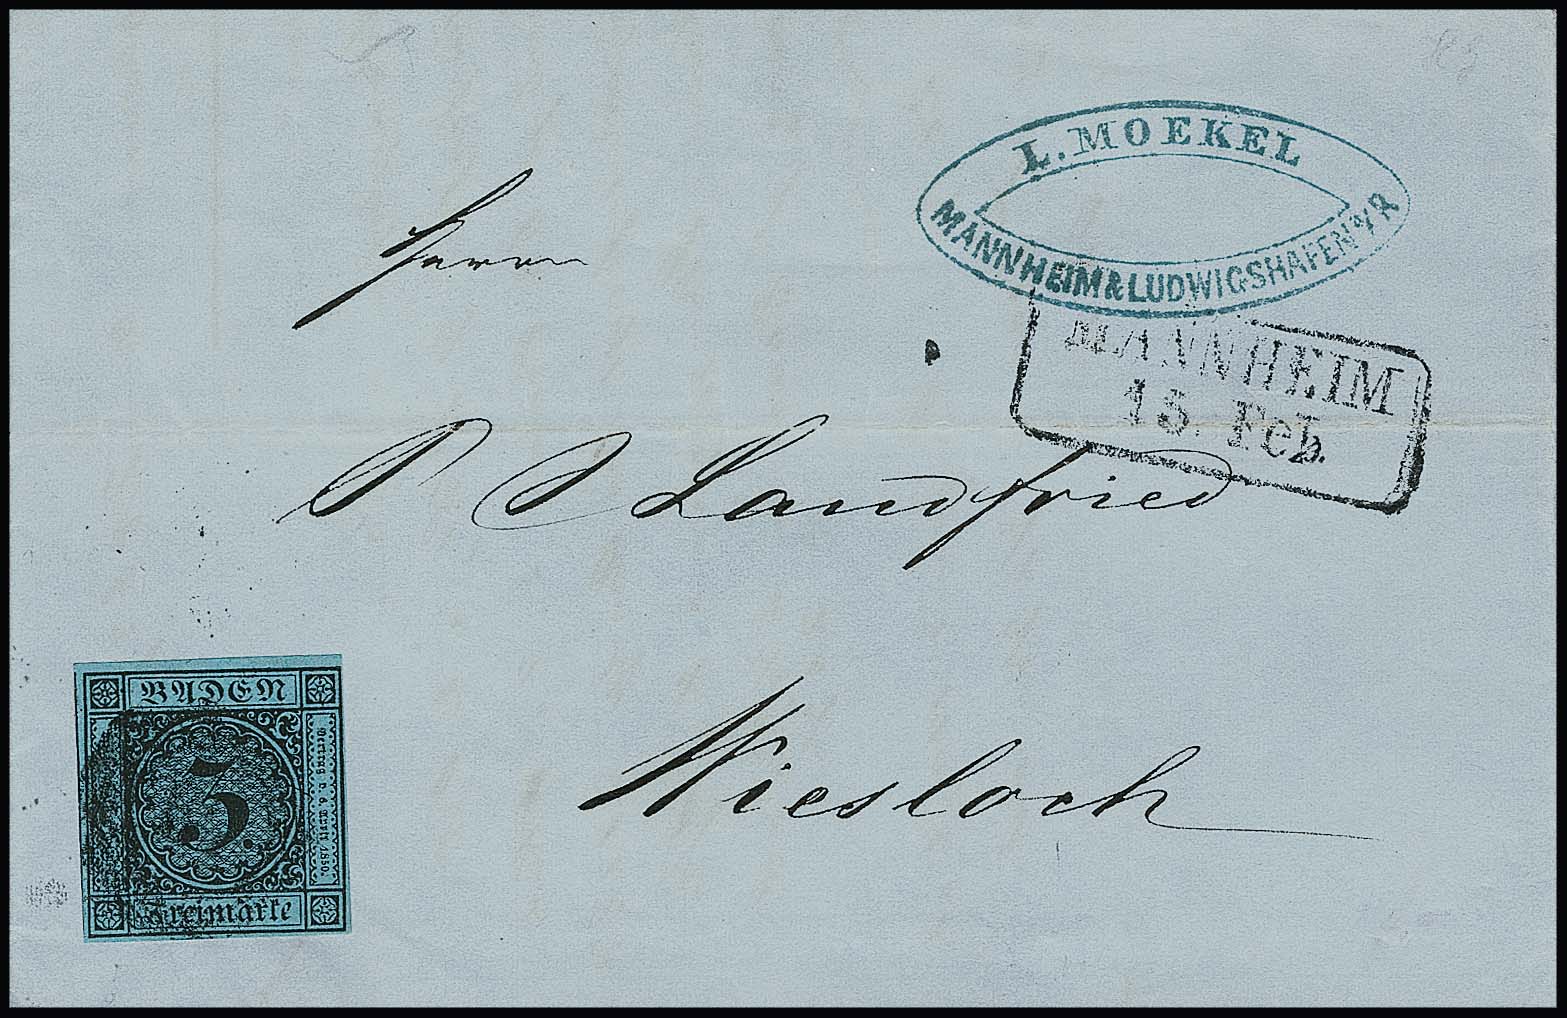 L. MOEKEL
MANNHEIM & LUDWIGSHAFEN a/R
MANNHEIM
15. Feb.
Herrn
P J Landfried
Wiesloch
BADEN
3.
Freimarke
Vertrag v. 6. April 1850.